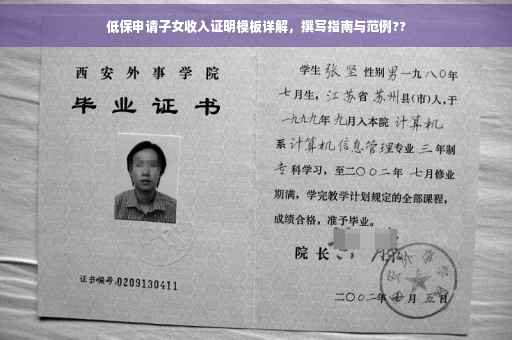 低保申请子女收入证明模板详解，撰写指南与范例??
西安外事学院
毕业证书
证书编号:0209130411
学生 张坚 性别 男 一九八〇年
七月生，江苏省 苏州县(市)人，于
一九九九年 九月入本院 计算机
系 计算机信息管理专业 三 年制
专 科学习，至二〇〇二年 七月修业
期满，学完教学计划规定的全部课程，
成绩合格，准予毕业。
院长
二〇〇二年 月 五日